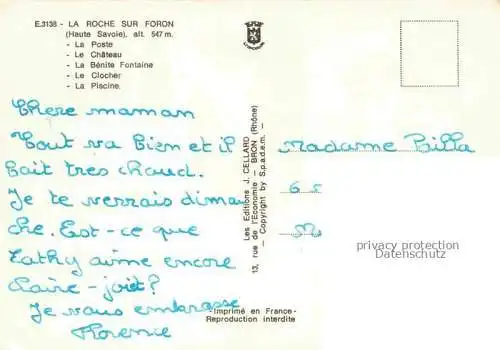 E.3138 - LA ROCHE SUR FORON
(Haute Savoie), alt. 547 m.
- La Poste
- Le Château
- La Bénite Fontaine
- Le Clocher
- La Piscine.
Chere maman
Tout va bien et il
fait tres chaud.
Je te verrais diman
che. Est-ce que
Cathy aime encore
Claire-joie?
Je vous embrasse
Florence
Les Editions J. CELLARD
13, rue de l'Economie - BRON (Rhône)
- Copyright by S.p.a.d.e.m. -
Madame Pailla
privacy protection
Datenschutz
-Imprimé en France-
Reproduction interdite